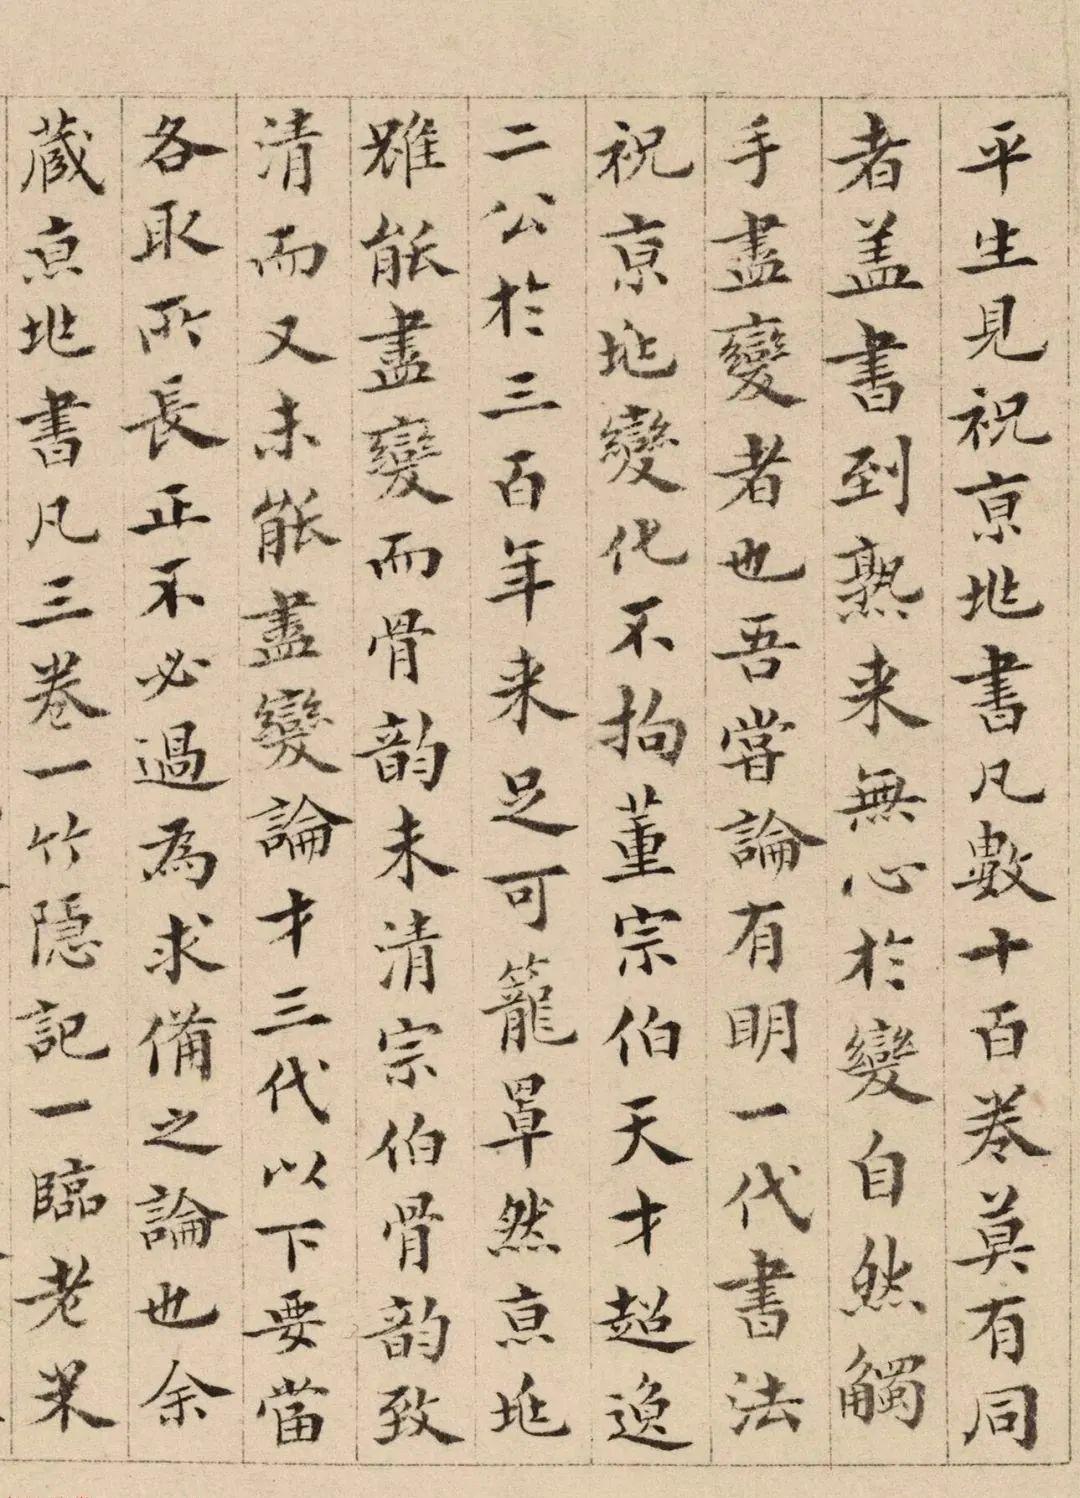 平生見祝京兆書凡數十百卷莫有同
者盖書到熟来無心於變自然觸
手盡變者也吾嘗論有明一代書法
祝京兆變化不拘董宗伯天才超逸
二公於三百年来足可籠罩然京兆
雖能盡變而骨韵未清宗伯骨韵致
清而又未能盡變論才三代以下要當
各取所長正不必過為求備之論也余
蔵京兆書凡三卷一竹隱記一臨老米